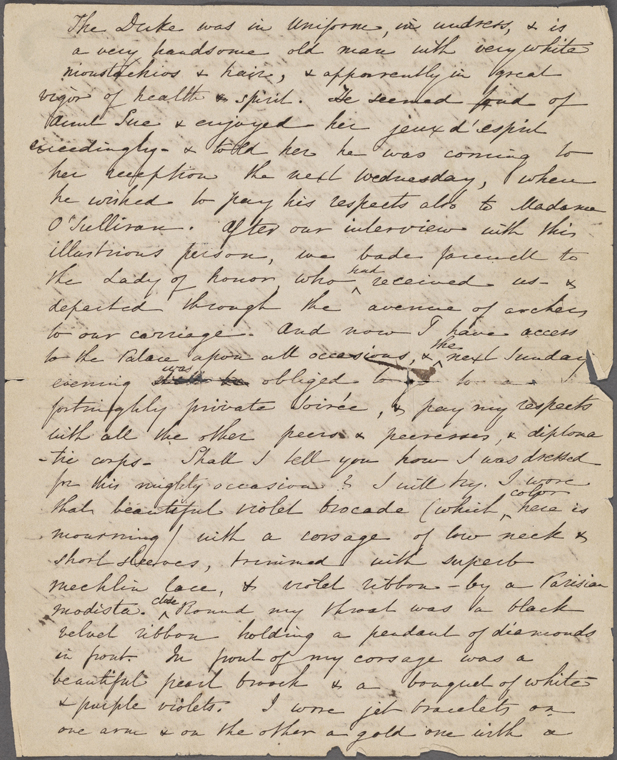 The Duke was in uniform, in undress, & is
a very handsome old man with very white
moustachios & hair, & apparently in great
vigor of health & spirit. He seemed fond of
Aunt Sue & enjoyed her jeux d'esprit
exceedingly- & told her he was coming to
her reception the next Wednesday, when
he wished to pay his respects also to Madame
O'Sullivan. After our interview with this
illustrious person, we bade farewell to
the Lady of honor, who had received us- &
departed through the avenue of archers
to our carriage. And now I have access
to the Palace upon all occasions, & the next Sunday
evening was obliged to to a
fortnightly private soirée, & pay my respects
with all the other peers & peeresses, & diploma
-tic corps- Shall I tell you how I was dressed
for this mighty occasion? I will try. I wore
that beautiful violet brocade (which color here is
mourning) with a corsage of low neck &
short sleeves, trimmed with superb
mechlin lace, & violet ribbon - by a Parisian
modista. Close Round my throat was a black
velvet ribbon holding a pendant of diamonds
in front. In front of my corsage was a
beautiful pearl brooch & a bouquet of white
& purple violets. I wore jet bracelets on
one arm & on the other a gold one with a